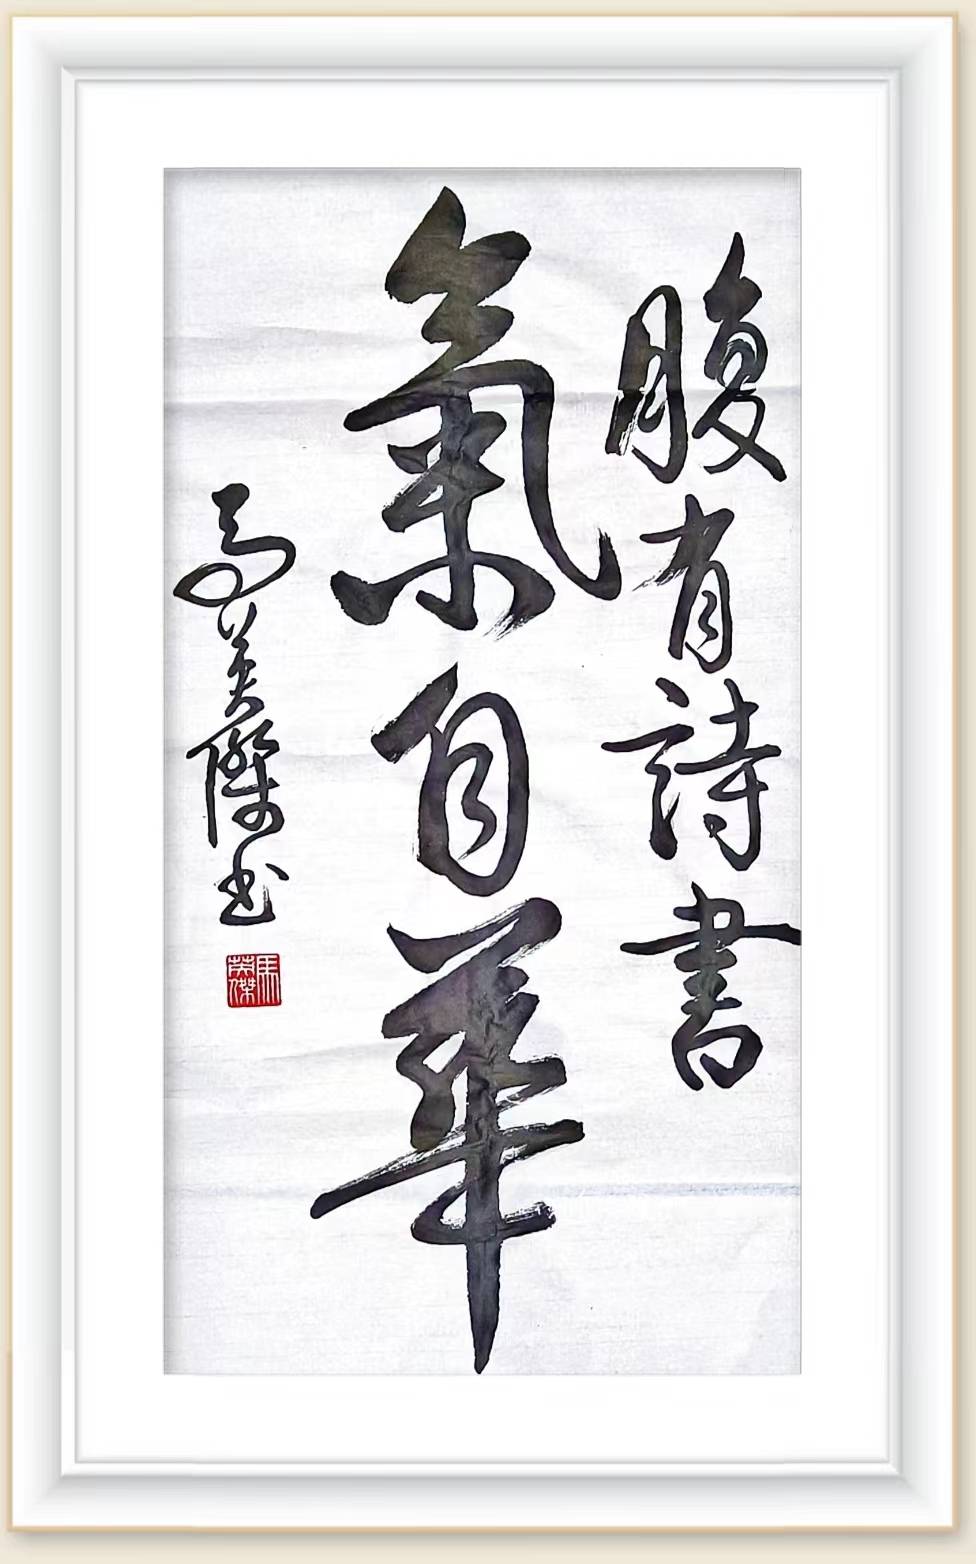 腹有詩書
氣自華
馬英傑书
馬英傑